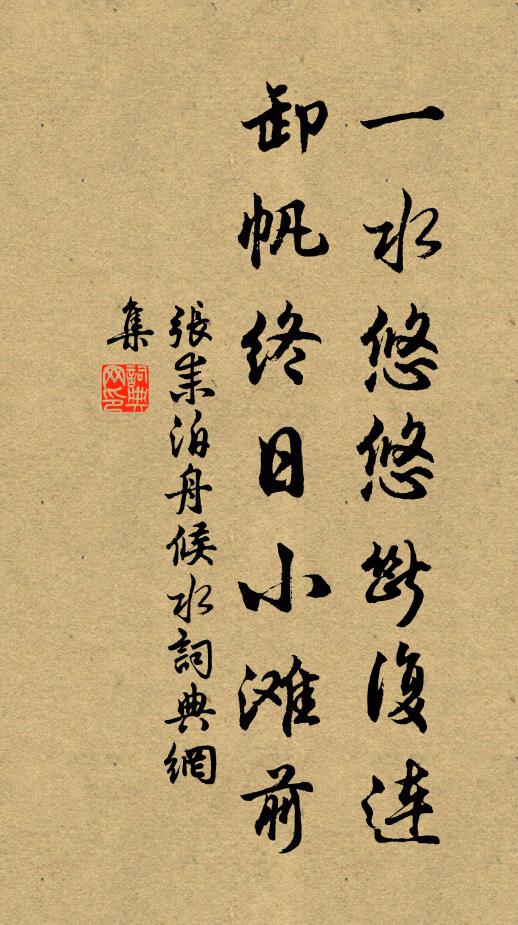 一水悠悠斷復連
卸帆終日小滩前
張耒泊舟候水詞典網
集
詞典网印